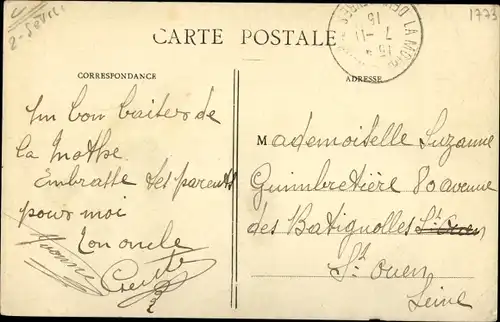 2-Sèvres
1773
CARTE POSTALE
CORRESPONDANCE
ADRESSE
LA MOTHE
7 -11
15
Un bon baiser de
la Mothe
Embrasse tes parents
pour moi
Ton oncle
Yvonne
Mademoiselle Suzanne
Guimbretière 80 avenue
des Batignolles St Ouen
St Ouen
Seine